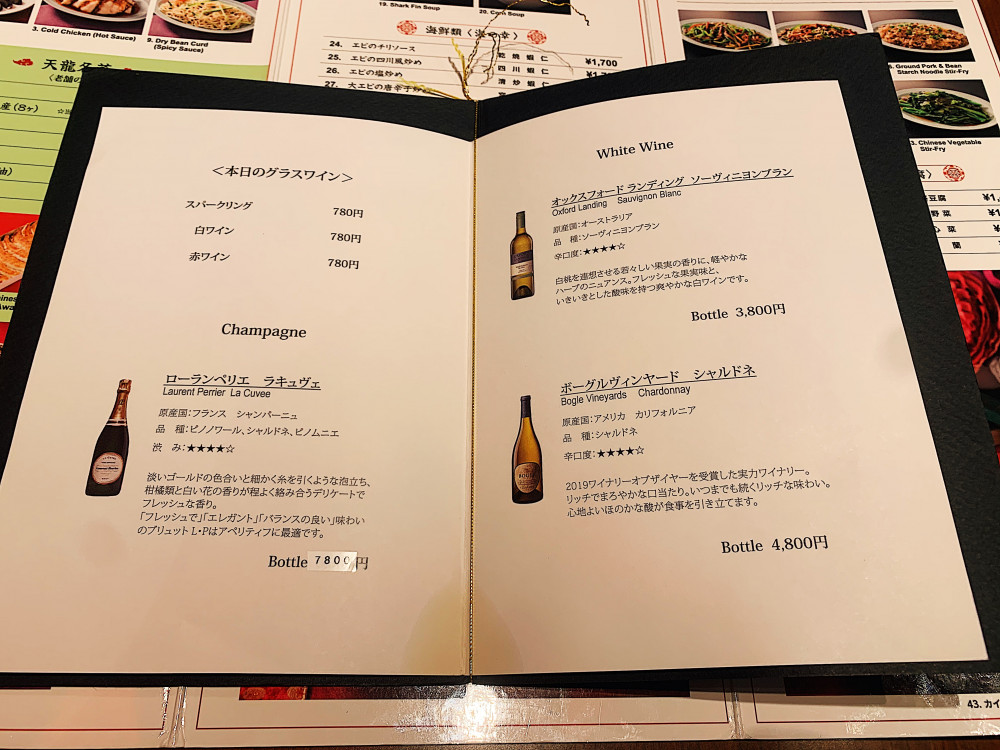 3. Cold Chicken (Hot Sauce)
9. Dry Bean Curd
(Spicy Sauce)
19. Shark Fin Soup
20. Corn Soup
海鮮類〈海の幸〉
24. エビのチリソース
乾焼蝦仁
¥1,700
25. エビの四川風炒め
四川蝦仁
26. エビの塩炒め
清炒蝦仁
27. 大エビの唐辛子炒
Ground Pork & Bean
Starch Noodle Stir-Fry
3. Chinese Vegetable
Stir-Fry
天龍名菜
〈老舗の
産(8ヶ)
<本日のグラスワイン>
スパークリング 780円
白ワイン 780円
赤ワイン 780円
Champagne
ローランペリエ ラキュヴェ
Laurent Perrier La Cuvee
原産国:フランス シャンパーニュ
品 種:ピノノワール、シャルドネ、ピノムニエ
渋 み:★★★★☆
淡いゴールドの色合いと細かく糸を引くような泡立ち、
柑橘類と白い花の香りが程よく絡み合うデリケートで
フレッシュな香り。
「フレッシュで」「エレガント」「バランスの良い」味わい
のブリュット L・Pはアペリティフに最適です。
Bottle 7800円
White Wine
オックスフォード ランディング ソーヴィニヨンブラン
Oxford Landing Sauvignon Blanc
原産国:オーストラリア
品 種:ソーヴィニヨンブラン
辛口度:★★★★☆
白桃を連想させる若々しい果実の香りに、軽やかな
ハーブのニュアンス。フレッシュな果実味と、
いきいきとした酸味を持つ爽やかな白ワインです。
Bottle 3,800円
ボーグルヴィンヤード シャルドネ
Bogle Vineyards Chardonnay
原産国:アメリカ カリフォルニア
品 種:シャルドネ
辛口度:★★★★☆
2019ワイナリーオブザイヤーを受賞した実力ワイナリー。
リッチでまろやかな口当たり。いつまでも続くリッチな味わい。
心地よいほのかな酸が食事を引き立てます。
Bottle 4,800円
43. カイ